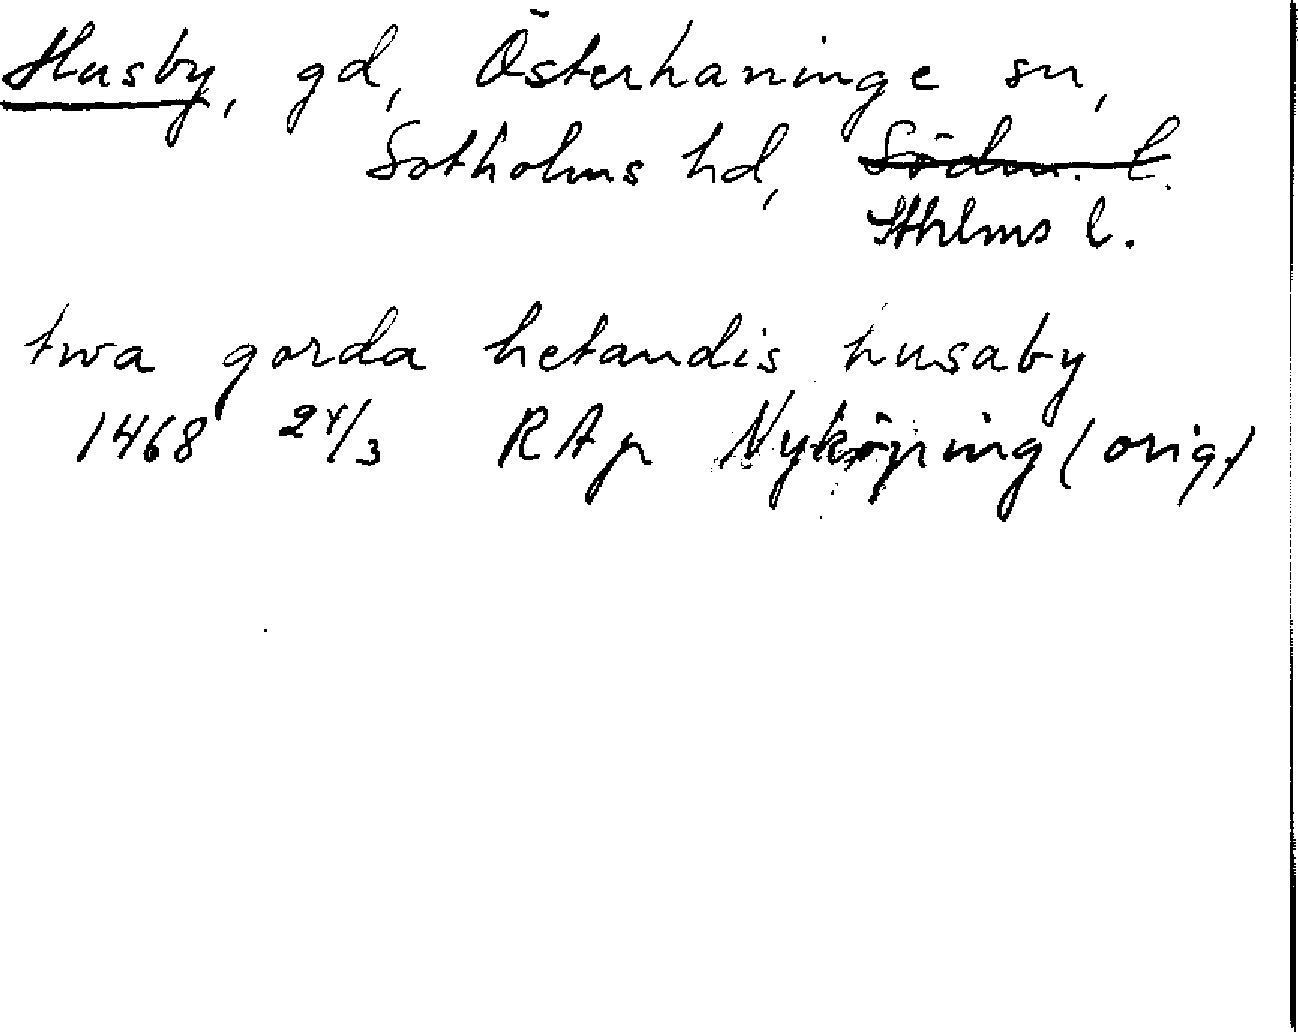 Husby, gd, Österhaninge sn,
Sotholms hd, Södm. l.
Sthlms l.
twa gorda hetandis husaby
1468 24/3 RAp Nyköping (orig)